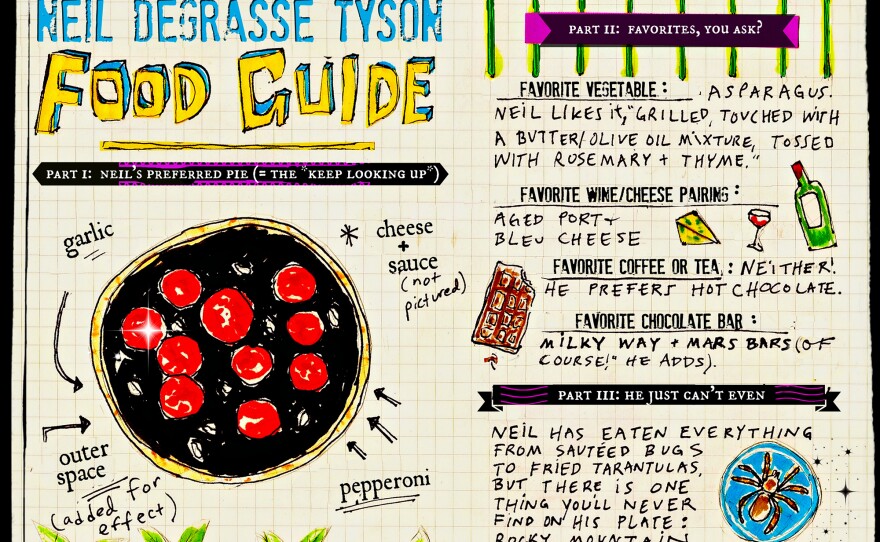 NEIL DEGRASSE TYSON
FOOD GUIDE
PART I: NEIL'S PREFERRED PIE (= THE "KEEP LOOKING UP")
garlic
* cheese
+
sauce
(not
pictured)
outer
space
(added for
effect)
pepperoni
PART II: FAVORITES, YOU ASK?
FAVORITE VEGETABLE: ASPARAGUS.
NEIL LIKES it, "GRILLED, TOUCHED WITH
A BUTTER/OLIVE OIL MIXTURE, TOSSED
WITH ROSEMARY + THYME."
FAVORITE WINE/CHEESE PAIRING:
AGED PORT +
BLEU CHEESE
FAVORITE COFFEE OR TEA: NEITHER!
HE PREFERS HOT CHOCOLATE.
FAVORITE CHOCOLATE BAR:
MILKY WAY + MARS BARS (OF
COURSE!" HE ADDS).
PART III: HE JUST CAN'T EVEN
NEIL HAS EATEN EVERYTHING
FROM SAUTÉED BUGS
TO FRIED TARANTULAS,
BUT THERE IS ONE
THING YOU'LL NEVER
FIND ON HIS PLATE:
ROCKY MOUNTAIN